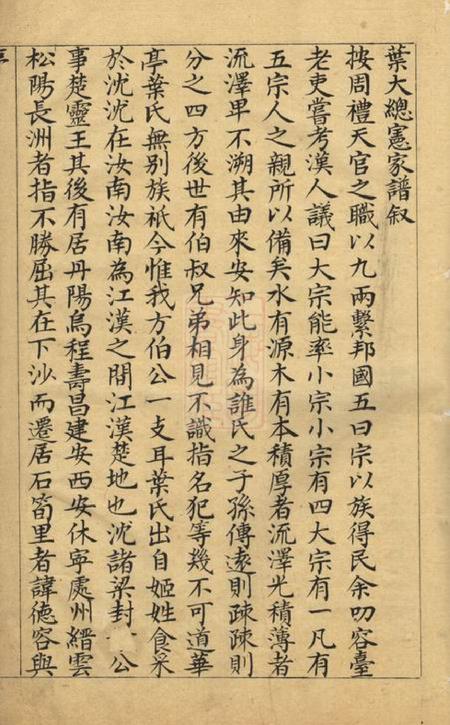 葉大總憲家譜叙
按周禮天官之職以九兩繫邦國五曰宗以族得民余叨容臺
老吏嘗考漢人議曰大宗能率小宗小宗有四大宗有一凡有
五宗人之親所以備矣水有源木有本積厚者流澤光積薄者
流澤早不溯其由來安知此身為誰氏之子孫傳遠則疎疎則
分之四方後世有伯叔兄弟相見不識指名犯等幾不可道華
亭葉氏無別族祇今惟我方伯公一支耳葉氏出自姬姓食采
於沈沈在汝南汝南為江漢之間江漢楚地也沈諸梁封公
事楚靈王其後有居丹陽烏程壽昌建安西安休寧處州縉雲
松陽長洲者指不勝屈其在下沙而遷居石筍里者諱德容與